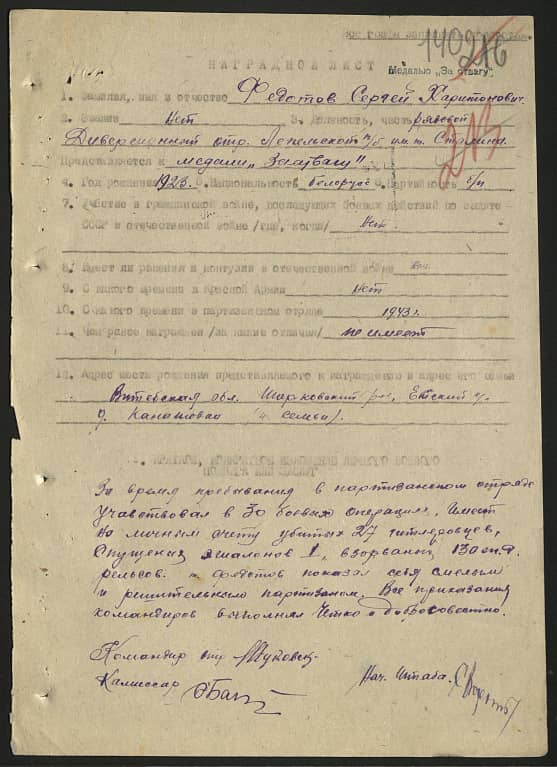 140216
НАГРАДНОЙ ЛИСТ
Медалью „За отвагу"
213
1. Фамилия, имя и отчество Федотов Сергей Харитонович
2. Звание Нет 3. Должность, часть рядовой
Диверсионный отр. Лепельской п/б им. т. Сталина
Представляется к медали „За отвагу"
4. Год рождения 1923 5. Национальность белорус 6. Партийность б/п
7. Участие в гражданской войне, последующих боевых действий по защите
СССР и отечественной войне /где, когда/ Нет.
8. Имеет ли ранения и контузии в отечественной войне
9. С какого времени в Красной Армии Нет
10. С какого времени в партизанском отряде 1943 г.
11. Чем ранее награжден /за какие отличия/ не имеет
12. Адрес места рождения представляемого к награждению и адрес его семьи
Витебская обл. Шарковский р-н,
д. Канашовка (и семьи).
I. КРАТКОЕ, КОНКРЕТНОЕ ИЗЛОЖЕНИЕ ЛИЧНОГО БОЕВОГО
ПОДВИГА ИЛИ ЗАСЛУГ
За время пребывания в партизанском отряде
учавствовал в 30 боевых операциях, Имеет
на личном счету убитых 27 гитлеровцев,
Спущеных эшалонов 1, взорванных 130 ж.д.
рельсов. т. Федотов показал себя смелым
и решительным партизаном. Все приказания
командиров выполнял четко и добросовестно.
Командир отр.
Комиссар
Нач. Штаба.